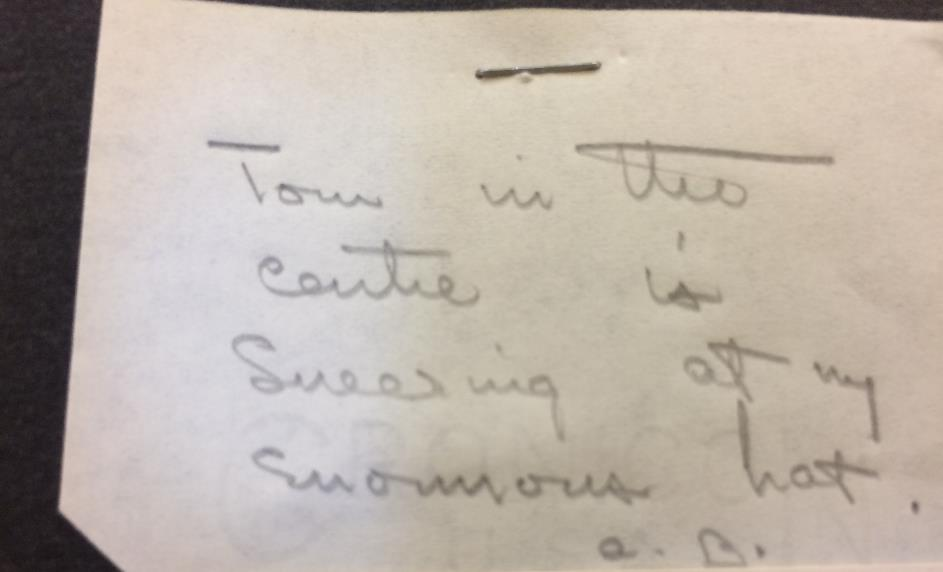 Tom in the
centre is
Sneering at my
enormous hat.
a. B.